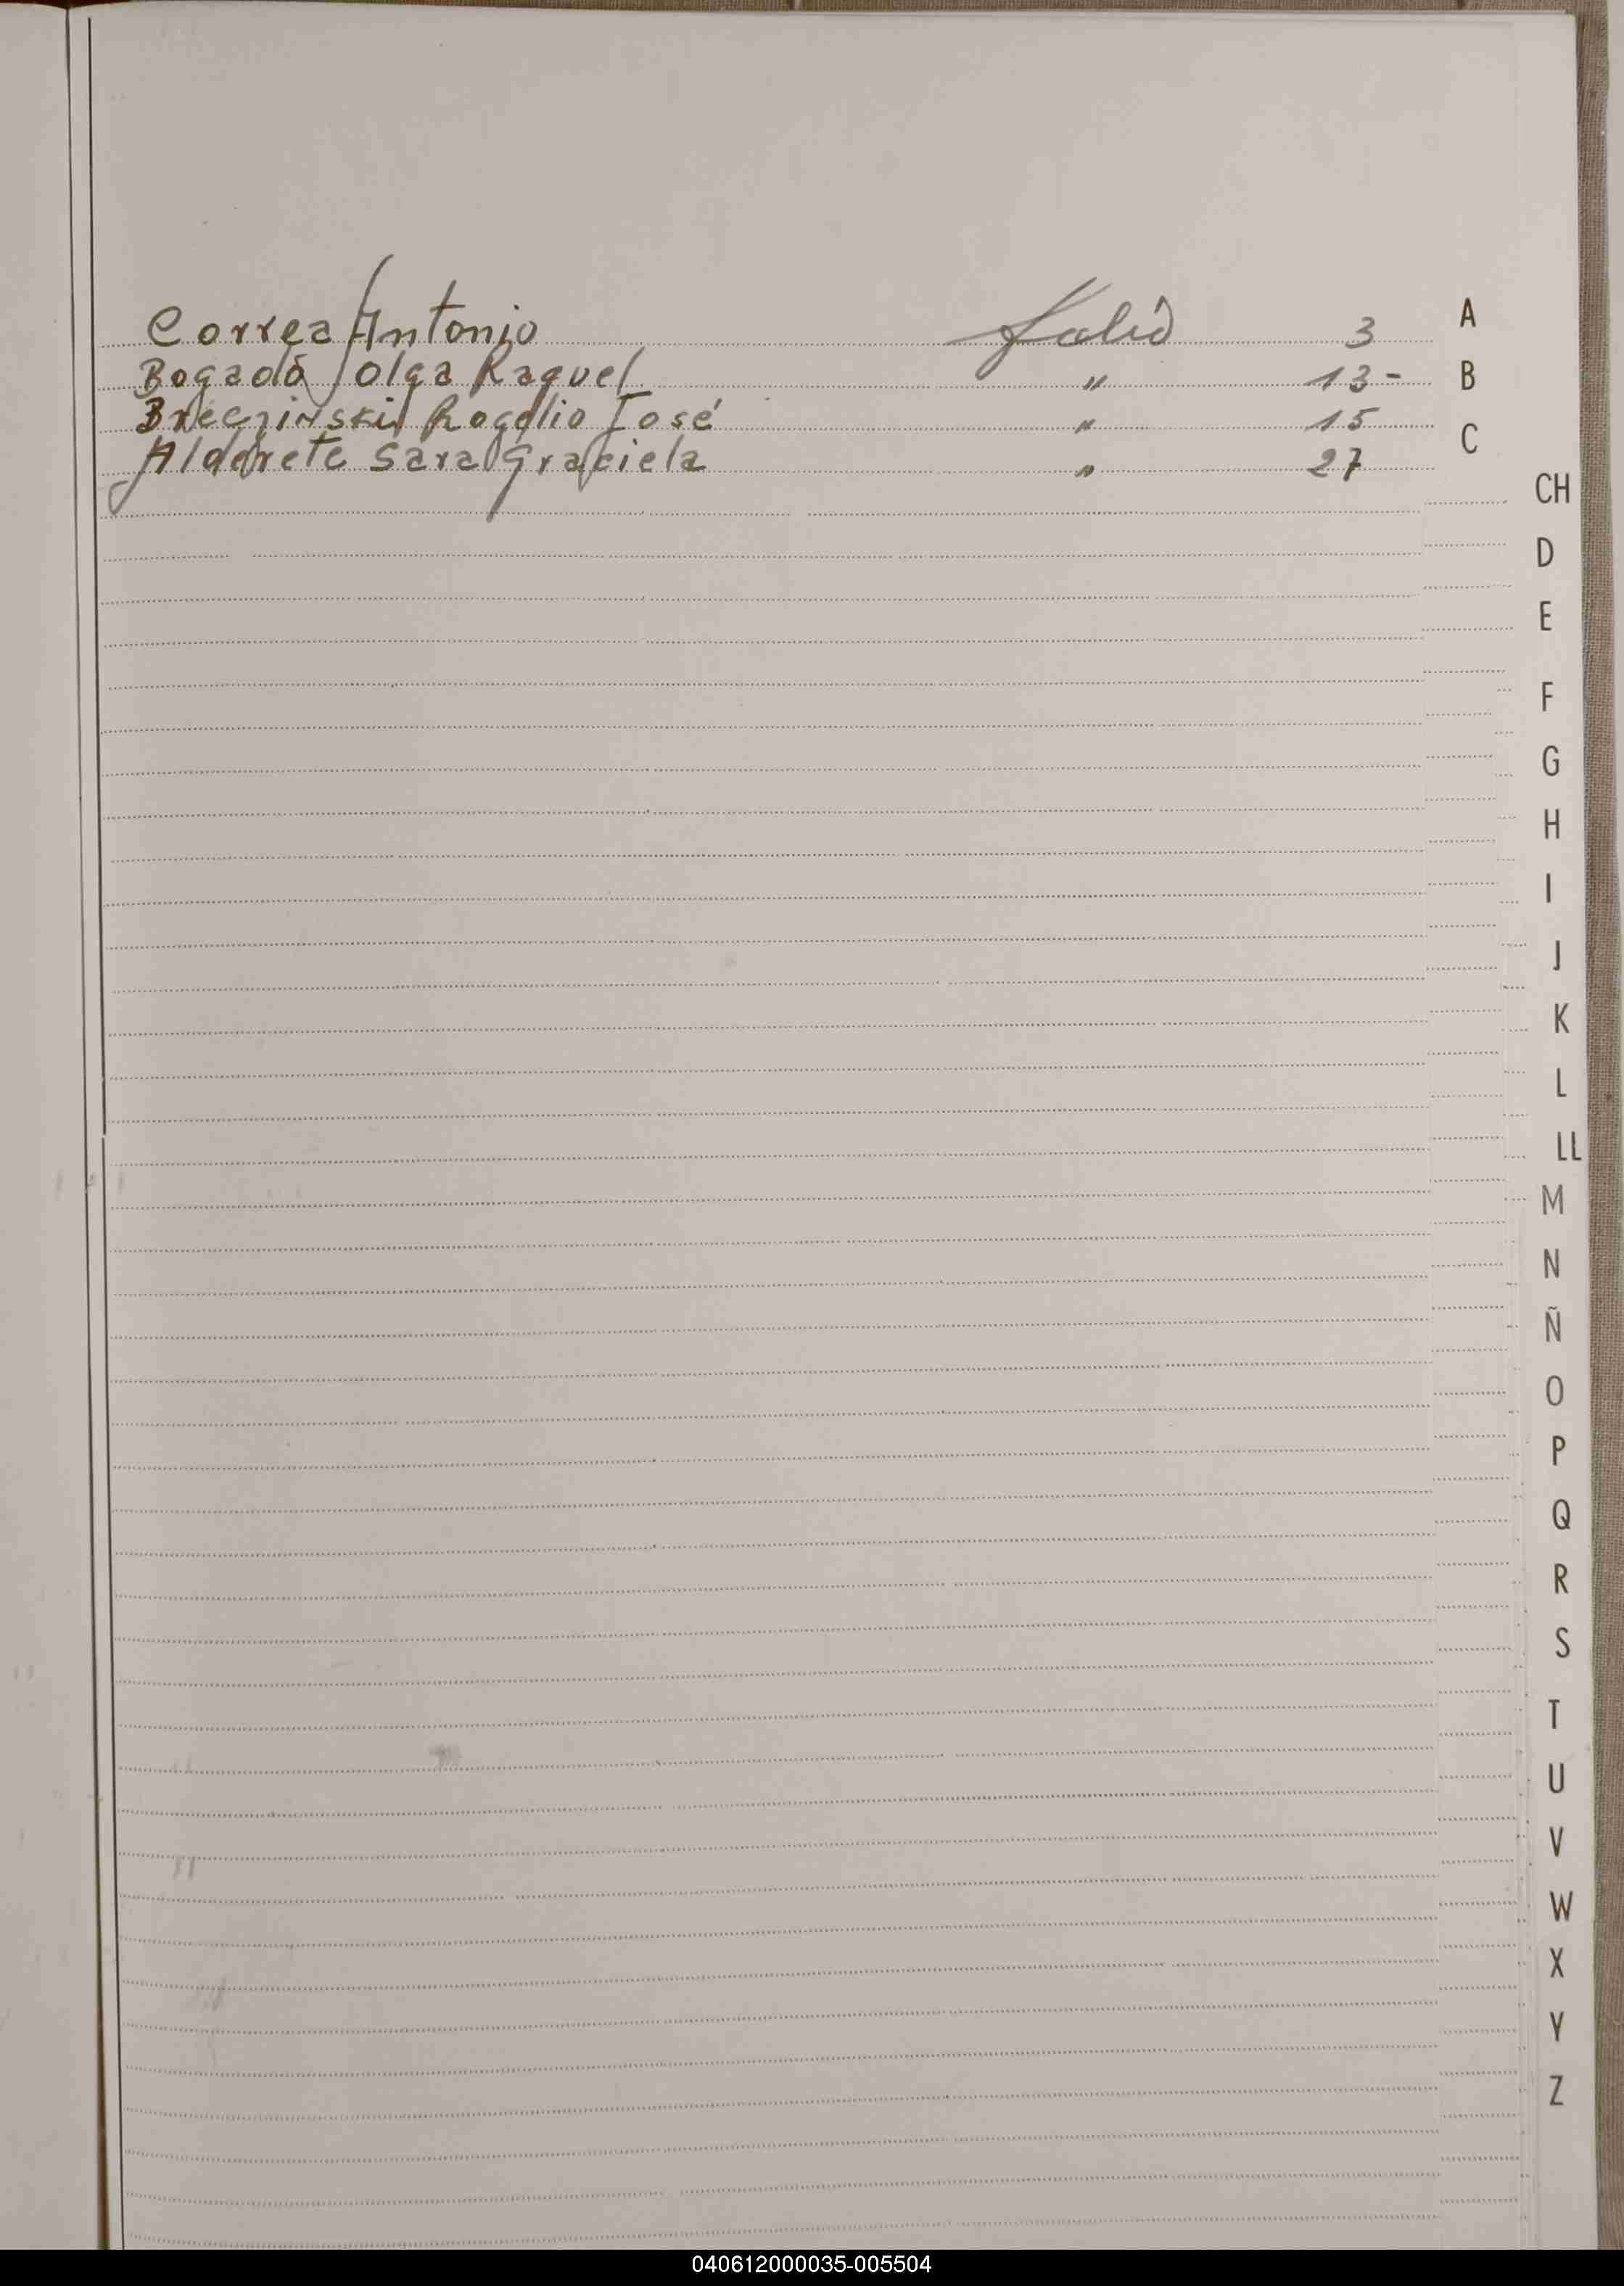 Correa Antonio Folio 3 A
Bogado Olga Raquel " 13- B
Breczinski Rogelio José " 15 C
Alderete Sara Graciela " 27
CH
D
E
F
G
H
I
J
K
L
LL
M
N
Ñ
O
P
Q
R
S
T
U
V
W
X
Y
Z
040612000035-005504